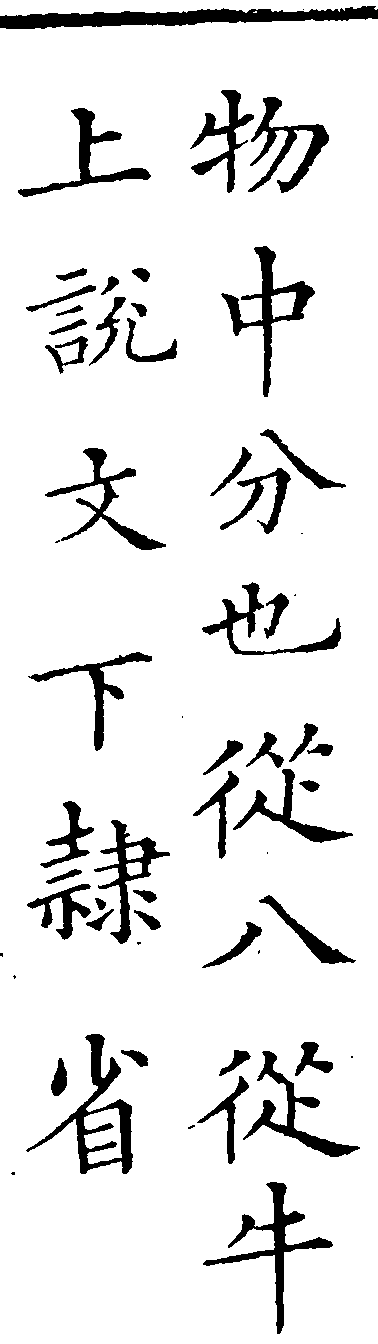 物中分也從八從牛
上說文下隷省